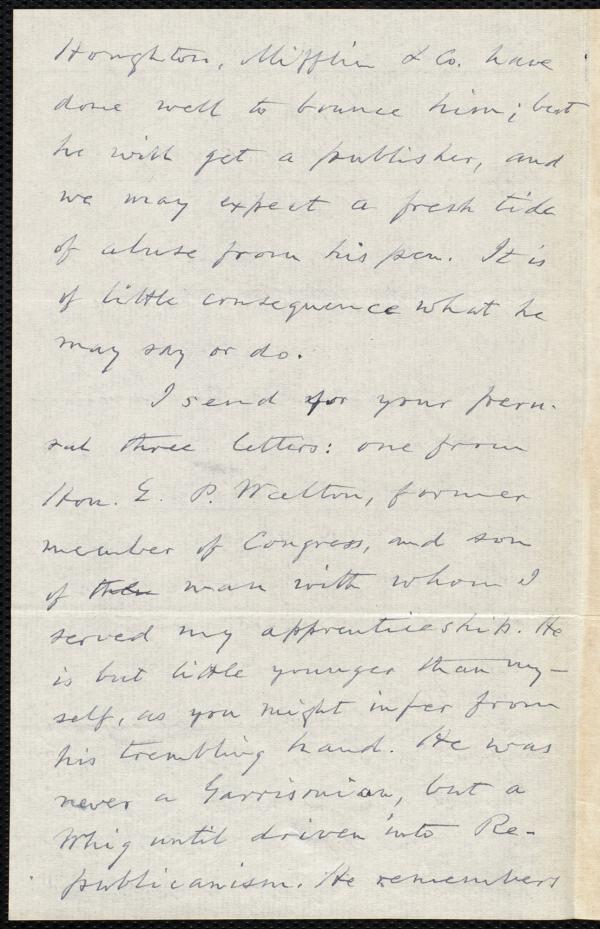 Houghton, Mifflin & Co. have
done well to bounce him; but
he will get a publisher, and
we may expect a fresh tide
of abuse from his pen. It is
of little consequence what he
may say or do.
I send for your peru-
sal three letters: one from
Hon. E. P. Walton, former
member of Congress, and son
of man with whom I
served my apprenticeship. He
is but little younger than my-
self, as you might infer from
his trembling hand. He was
never a Garrisonian, but a
Whig until driven into Re-
publicanism. He remembers